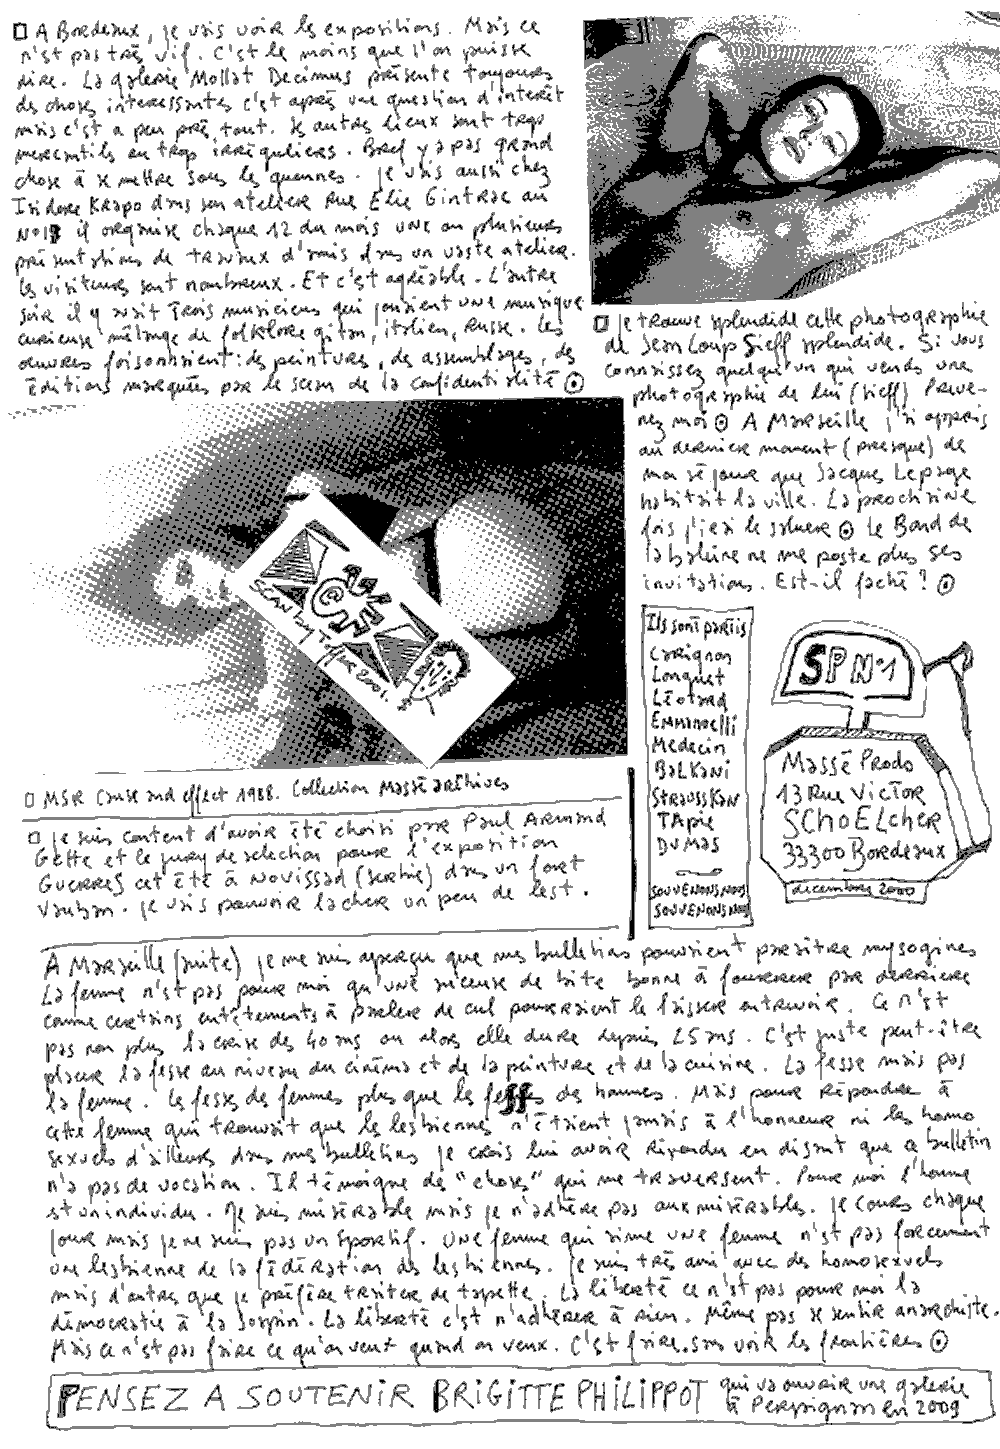 A Bordeaux, je vais voir les expositions. Mais ce
n'est pas très vif. C'est le moins que l'on puisse
dire. La galerie Mollat Decimus présente toujours
des choses interessantes c'est après une question d'interêt
mais c'est a peu près tout. Les autres lieux sont trop
mercantils ou trop irréguliers. Bref y a pas grand
chose à se mettre sous les quennes. Je vais aussi chez
Isidore Krapo dans son ateliere Rue Elie Gintrac au
il organise chaque 12 du mois une ou plusieurs
présentations de travaux d'amis dans un vaste atelier.
Les visiteurs sont nombreux. Et c'est agréable. L'autre
soir il y avait trois musiciens qui jouaient une musique
curieuse mélange de folklore gitan, italien, russe. Les
œuvres foisonnaient: des peintures, des assemblages, des
éditions marquées par le sceau de la confidentialité
Je trouve splendide cette photographie
de Jean Loup Sieff splendide. Si vous
connaissez quelqu'un qui vende une
photographie de lui (Sieff) Préve-
nez moi A Marseille j'ai appris
au derniere moment (presque) de
mon séjour que Jacques Lepage
habitait la ville. La prochaine
fois j'irai le saluer Le Bord de
la baleine ne me poste plus ses
invitations. Est-il faché ?
SCAN by 2001.
MSR Cause and effect 1988. Collection Massé archives
Je suis content d'avoir été choisi par Paul Armand
Gette et le jury de selection pour l'exposition
Guerres cet été à Novissad (Serbie) dans un fort
Vauban. Je vais pouvoir lacher un peu de lest.
Ils sont partis
Carignon
Longuet
Léotard
Emmanoelli
Medecin
BALKANi
STRAUSS KAN
TApie
DUMAS
SOUVENONS NOUS
SOUVENONS NOUS
SP N°1
Massé Prods
13 Rue Victor
SCHOELcher
33300 Bordeaux
decembre 2000
A Marseille (suite) je me suis aperçu que mes bulletins pouvaient paraître mysogines
La femme n'est pas pour moi qu'une suceuse de bite bonne à fourrer par derriere
comme certains entêtements à parler de cul pourraient le laisser entrevoir. Ce n'est
pas non plus la crise des 40 ans ou alors elle dure depuis 25 ans. C'est juste peut-être
placer la fesse au niveau du cinéma et de la peinture et de la cuisine. La fesse mais pas
la femme. Les fesses des femmes plus que les fesses des hommes. Mais pour répondre à
cette femme qui trouvait que les lesbiennes n'étaient jamais à l'honneur ni les homo
sexuels d'ailleurs dans mes bulletins je crois lui avoir répondu en disant que ce bulletin
n'a pas de vocation. Il témoigne des "choses" qui me traversent. Pour moi l'homme
est un individu. Je suis misérable mais je n'adhère pas aux misérables. Je cours chaque
jour mais je ne suis pas un sportif. Une femme qui aime une femme n'est pas forcément
une lesbienne de la fédération des lesbiennes. Je suis très ami avec des homosexuels
mais d'autres que je préfère traiter de tapette. La liberté ce n'est pas pour moi la
démocratie à la Jospin. La liberté c'est n'adhérer à rien. Même pas se sentir anarchiste.
Mais ce n'est pas faire ce qu'on veut quand on veux. C'est faire sans voir les frontières
PENSEZ A SOUTENIR BRIGITTE PHILIPPOT qui va ouvrir une galerie
à Perpignan en 2009